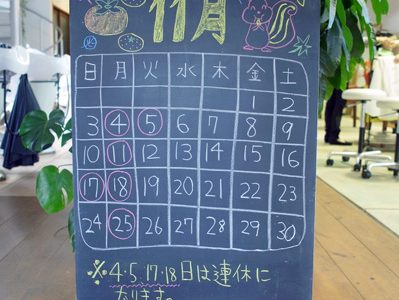 11月
日 月 火 水 木 金 土
1 2
3 4 5 6 7 8 9
10 11 12 13 14 15 16
17 18 19 20 21 22 23
24 25 26 27 28 29 30
※4・5、17・18日は連休に
なります。